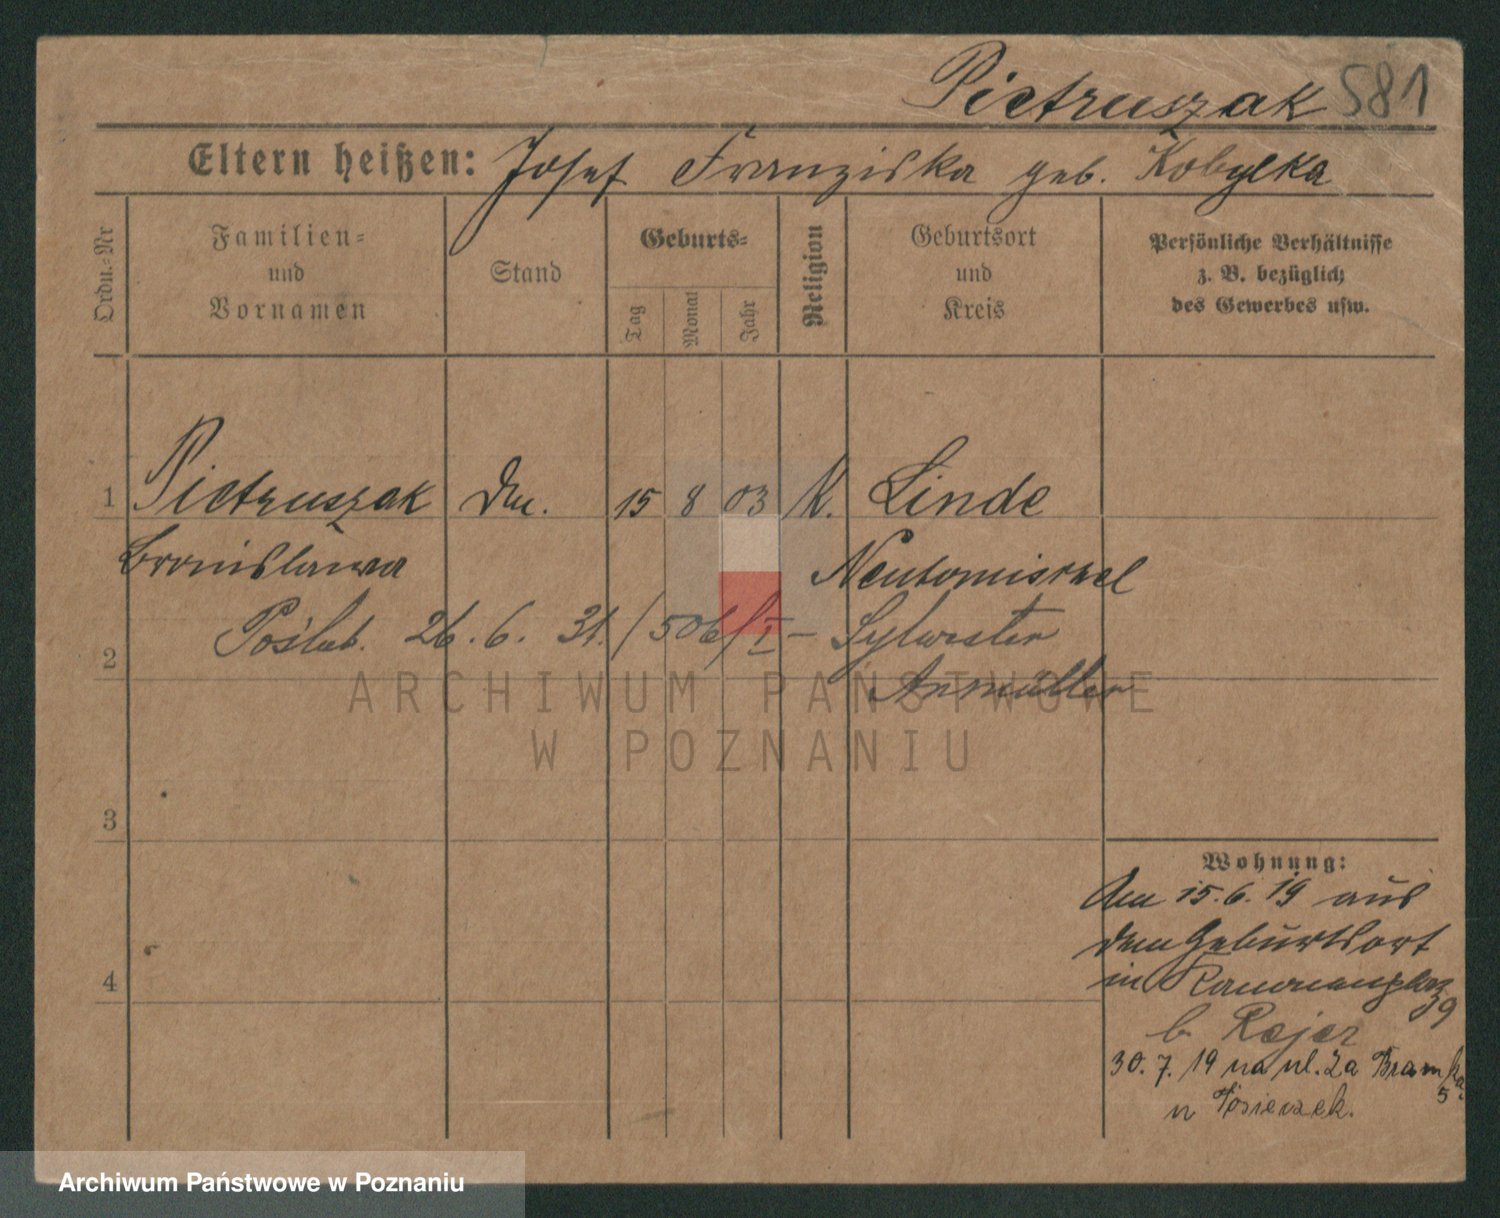 Pietruszak 581
Eltern heißen: Josef Franziska geb. Kobylka
Ordn.-Nr
Familien-
und
Vornamen
Stand
Geburts-
Tag Monat Jahr
Religion
Geburtsort
und
Kreis
Persönliche Verhältnisse
z. B. bezüglich
des Gewerbes usw.
1 Pietruszak 15 8 03 K. Linde
Bronislawa Neutomischel
2 Poślub. 26. 6. 31. (506/I - Sylwester
3
4
Wohnung:
Am 15. 6. 19 aus
dem Geburtsort
in 39
b. Rejer
30. 7. 19 na ul. Za Bramką
5
u
ARCHIWUM PAŃSTWOWE
W POZNANIU
Archiwum Państwowe w Poznaniu